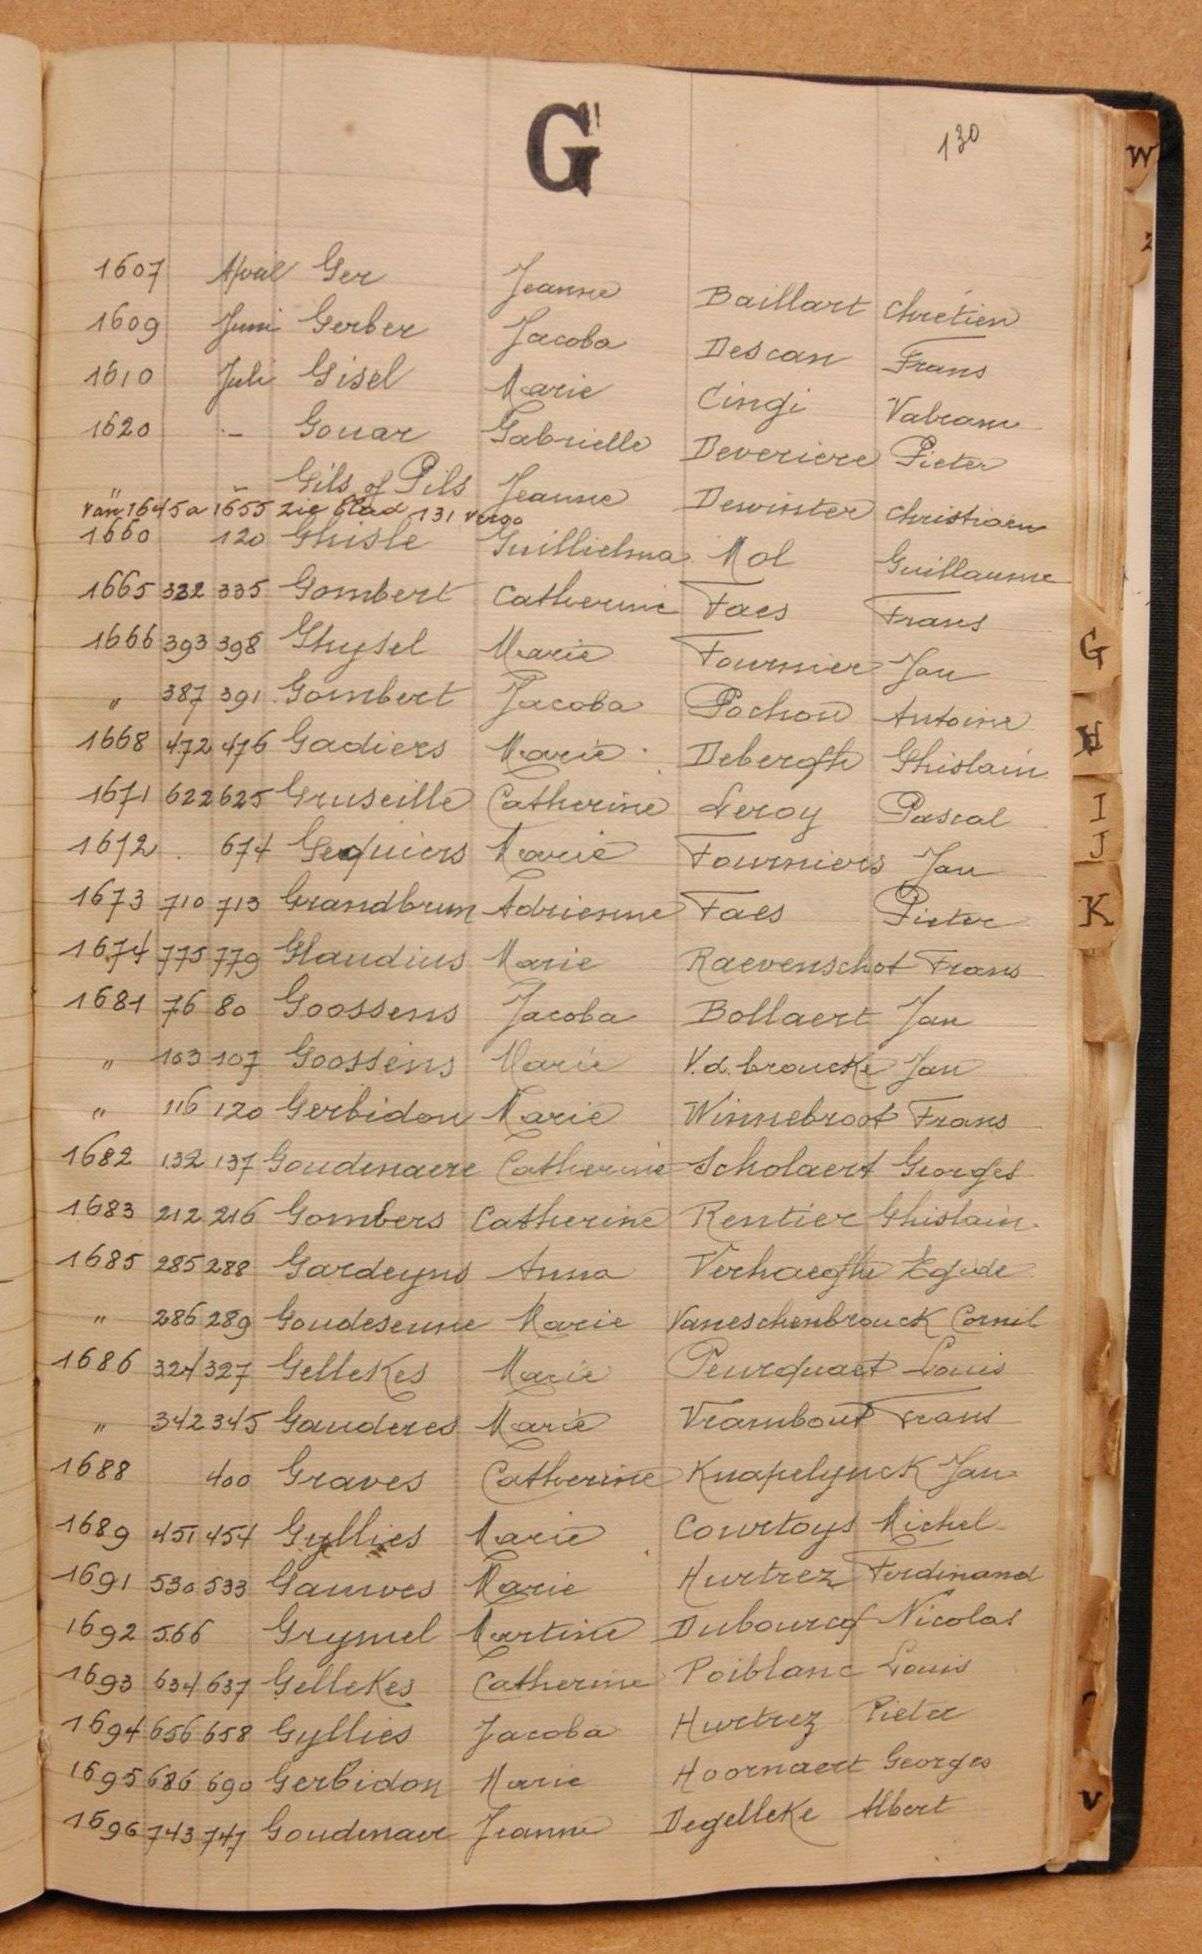 G
130
1607 April Ger Jeanne Baillart Chretien
1609 Juni Gerber Jacoba Descan Frans
1610 Juli Gisel Marie Cingi Vabram
1620 - Gouar Gabrielle Deveriere Pieter
" - Gils of Pils Jeanne Dewinter Christiaen
van 1645 a 1655 zie blad 131 verso
1660 120 Ghisle Guillielma Mol Guillaume
1665 332 335 Gombert Catherine Faes Frans
1666 393 398 Ghysel Marie Fournier Jan
" 387 391 Gombert Jacoba Pochon Antoine
1668 472 476 Gadiers Marie Debergh Ghislain
1671 622 625 Gruseille Catherine Leroy Pascal
1672 674 Gequiers Marie Fourniers Jan
1673 710 713 Grandbrun Adrienne Faes Pieter
1674 775 779 Glaudius Marie Raevenschot Frans
1681 76 80 Goossens Jacoba Bollaert Jan
" 103 107 Goossens Marie V.d. broucke Jan
" 116 120 Gerbidon Marie Winnebroot Frans
1682 132 137 Goudenaere Catherine Scholaert Georges
1683 212 216 Gombers Catherine Rentier Ghislain
1685 285 288 Gardeyns Anna Verhaeghe Egide
" 286 289 Goudesenne Marie Vaneschenbrouck Cornil
1686 324 327 Gellekes Marie Peurquaet Louis
" 342 345 Gauderes Marie Vrambout Frans
1688 400 Graves Catherine Knapelynck Jan
1689 451 454 Gyllies Marie Courtoys Michel
1691 530 533 Gauwes Marie Hurtrez Ferdinand
1692 566 Grymel Martine Dubourcq Nicolas
1693 634 637 Gellekes Catherine Poiblanc Louis
1694 656 658 Gyllies Jacoba Hurtrez Pieter
1695 686 690 Gerbidon Marie Hoornaert Georges
1696 743 747 Goudenaer Jeanne Degelleke Albert
W
Z
G
H
I
J
K
V